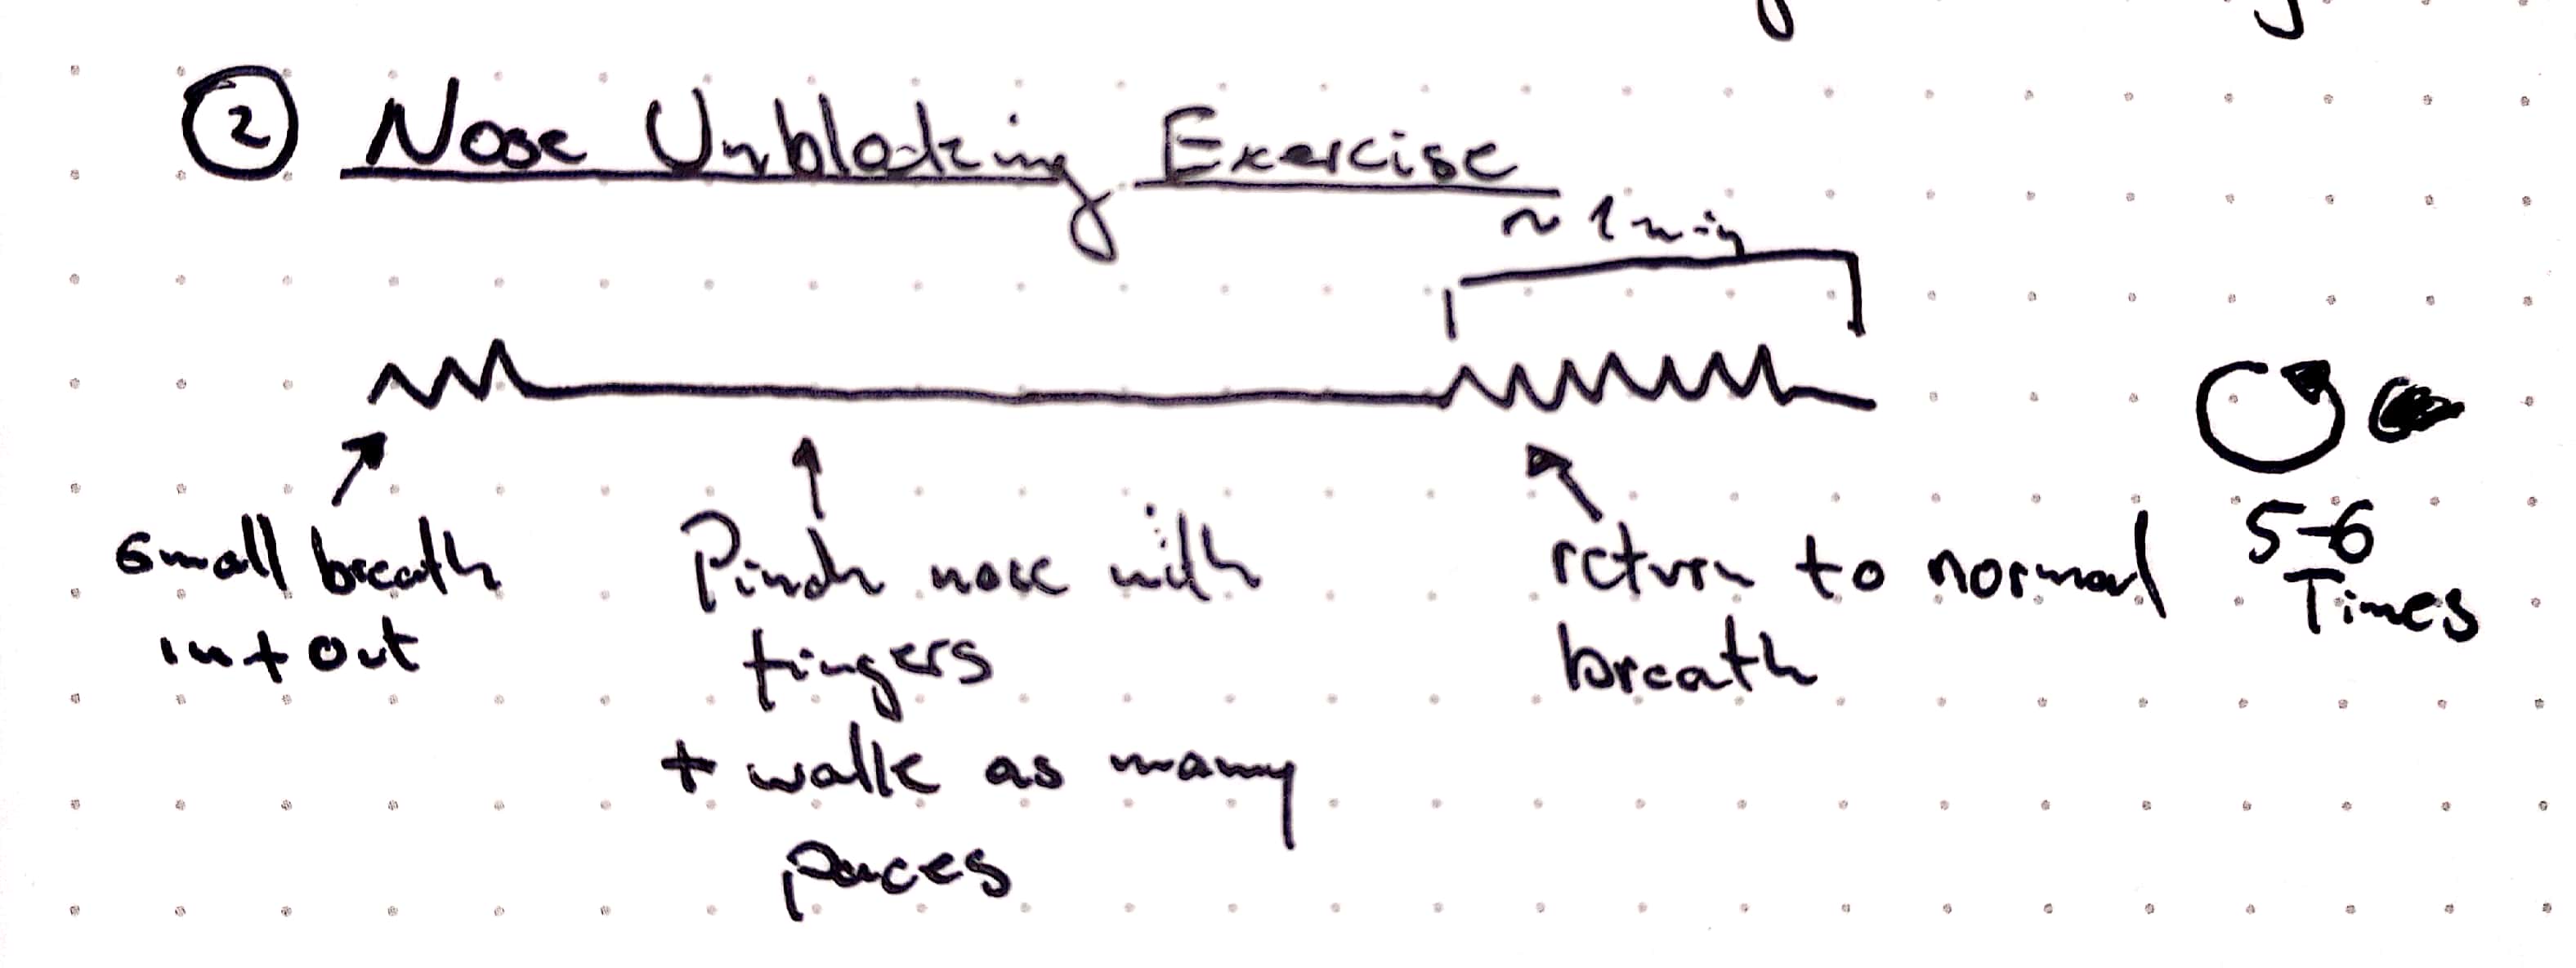 2 Nose Unblocking Exercise
~ 1 min
small breath
in + out
Pinch nose with
fingers
+ walk as many
paces
return to normal
breath
5-6
Times